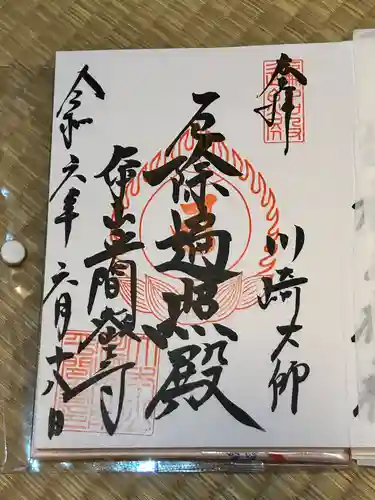 奉拝
川崎大師
厄除遍照殿
山平間寺
令和六年六月十八日